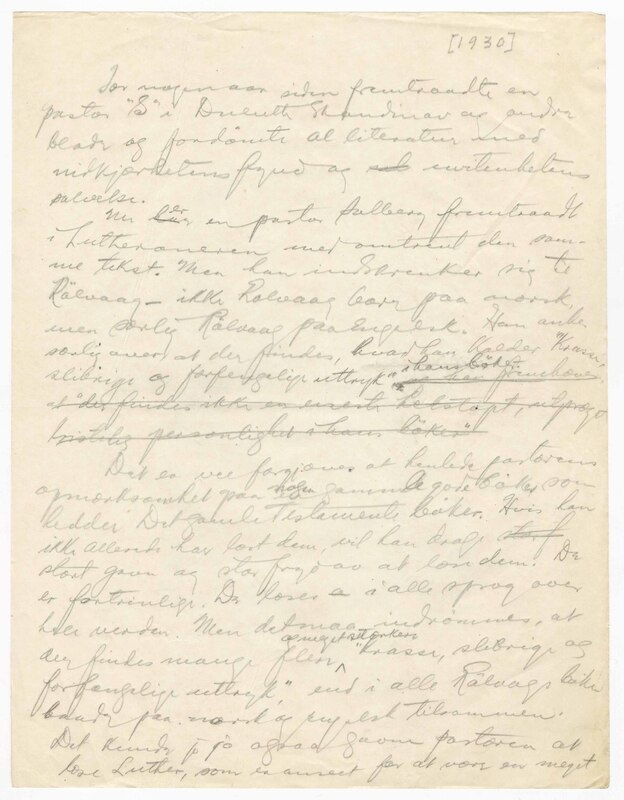 [1930]
For nogen aar siden fremtraadte en
pastor "S" i Duluth Skandinav og andre
blade og fordömte al literatur med
nidkjærhetens fryd og uvitenhetens
salvelse.
Nu er en pastor fremtraadt
i Lutheraneren med omtrent den sam-
me tekst. Men han indskrenker sig til
Rölvaag — ikke Rölvaag bare paa norsk,
men særlig Rölvaag paa Engelsk. Han anker
særlig over at der findes, hvad han kalder "Krasse,
slibrige og forfengelige uttryk" i hans böker
at "der findes ikke en eneste helstøpt, utpræget
kristelig personlighet i hans böker"
Det er vel forgjæves at henlede pastorens
opmærksomhet paa nogen gamle gode böker som
hedder Det gamle Testamentes böker. Hvis han
ikke allerede har læst dem, vil han drage
stort gavn og stor fryd av at læse dem. De
er fortrinlige. De læses i alle sprog over
hele verden. Men det maa indrømmes, at
der findes mange flere og meget stærkere "krasse, slibrige og
forfengelige uttryk" end i alle Rölvaags böker
baade paa norsk og engelsk tilsammen.
Det kunde jo ogsaa gavne pastoren at
læse Luther, som er anseet for at være en meget